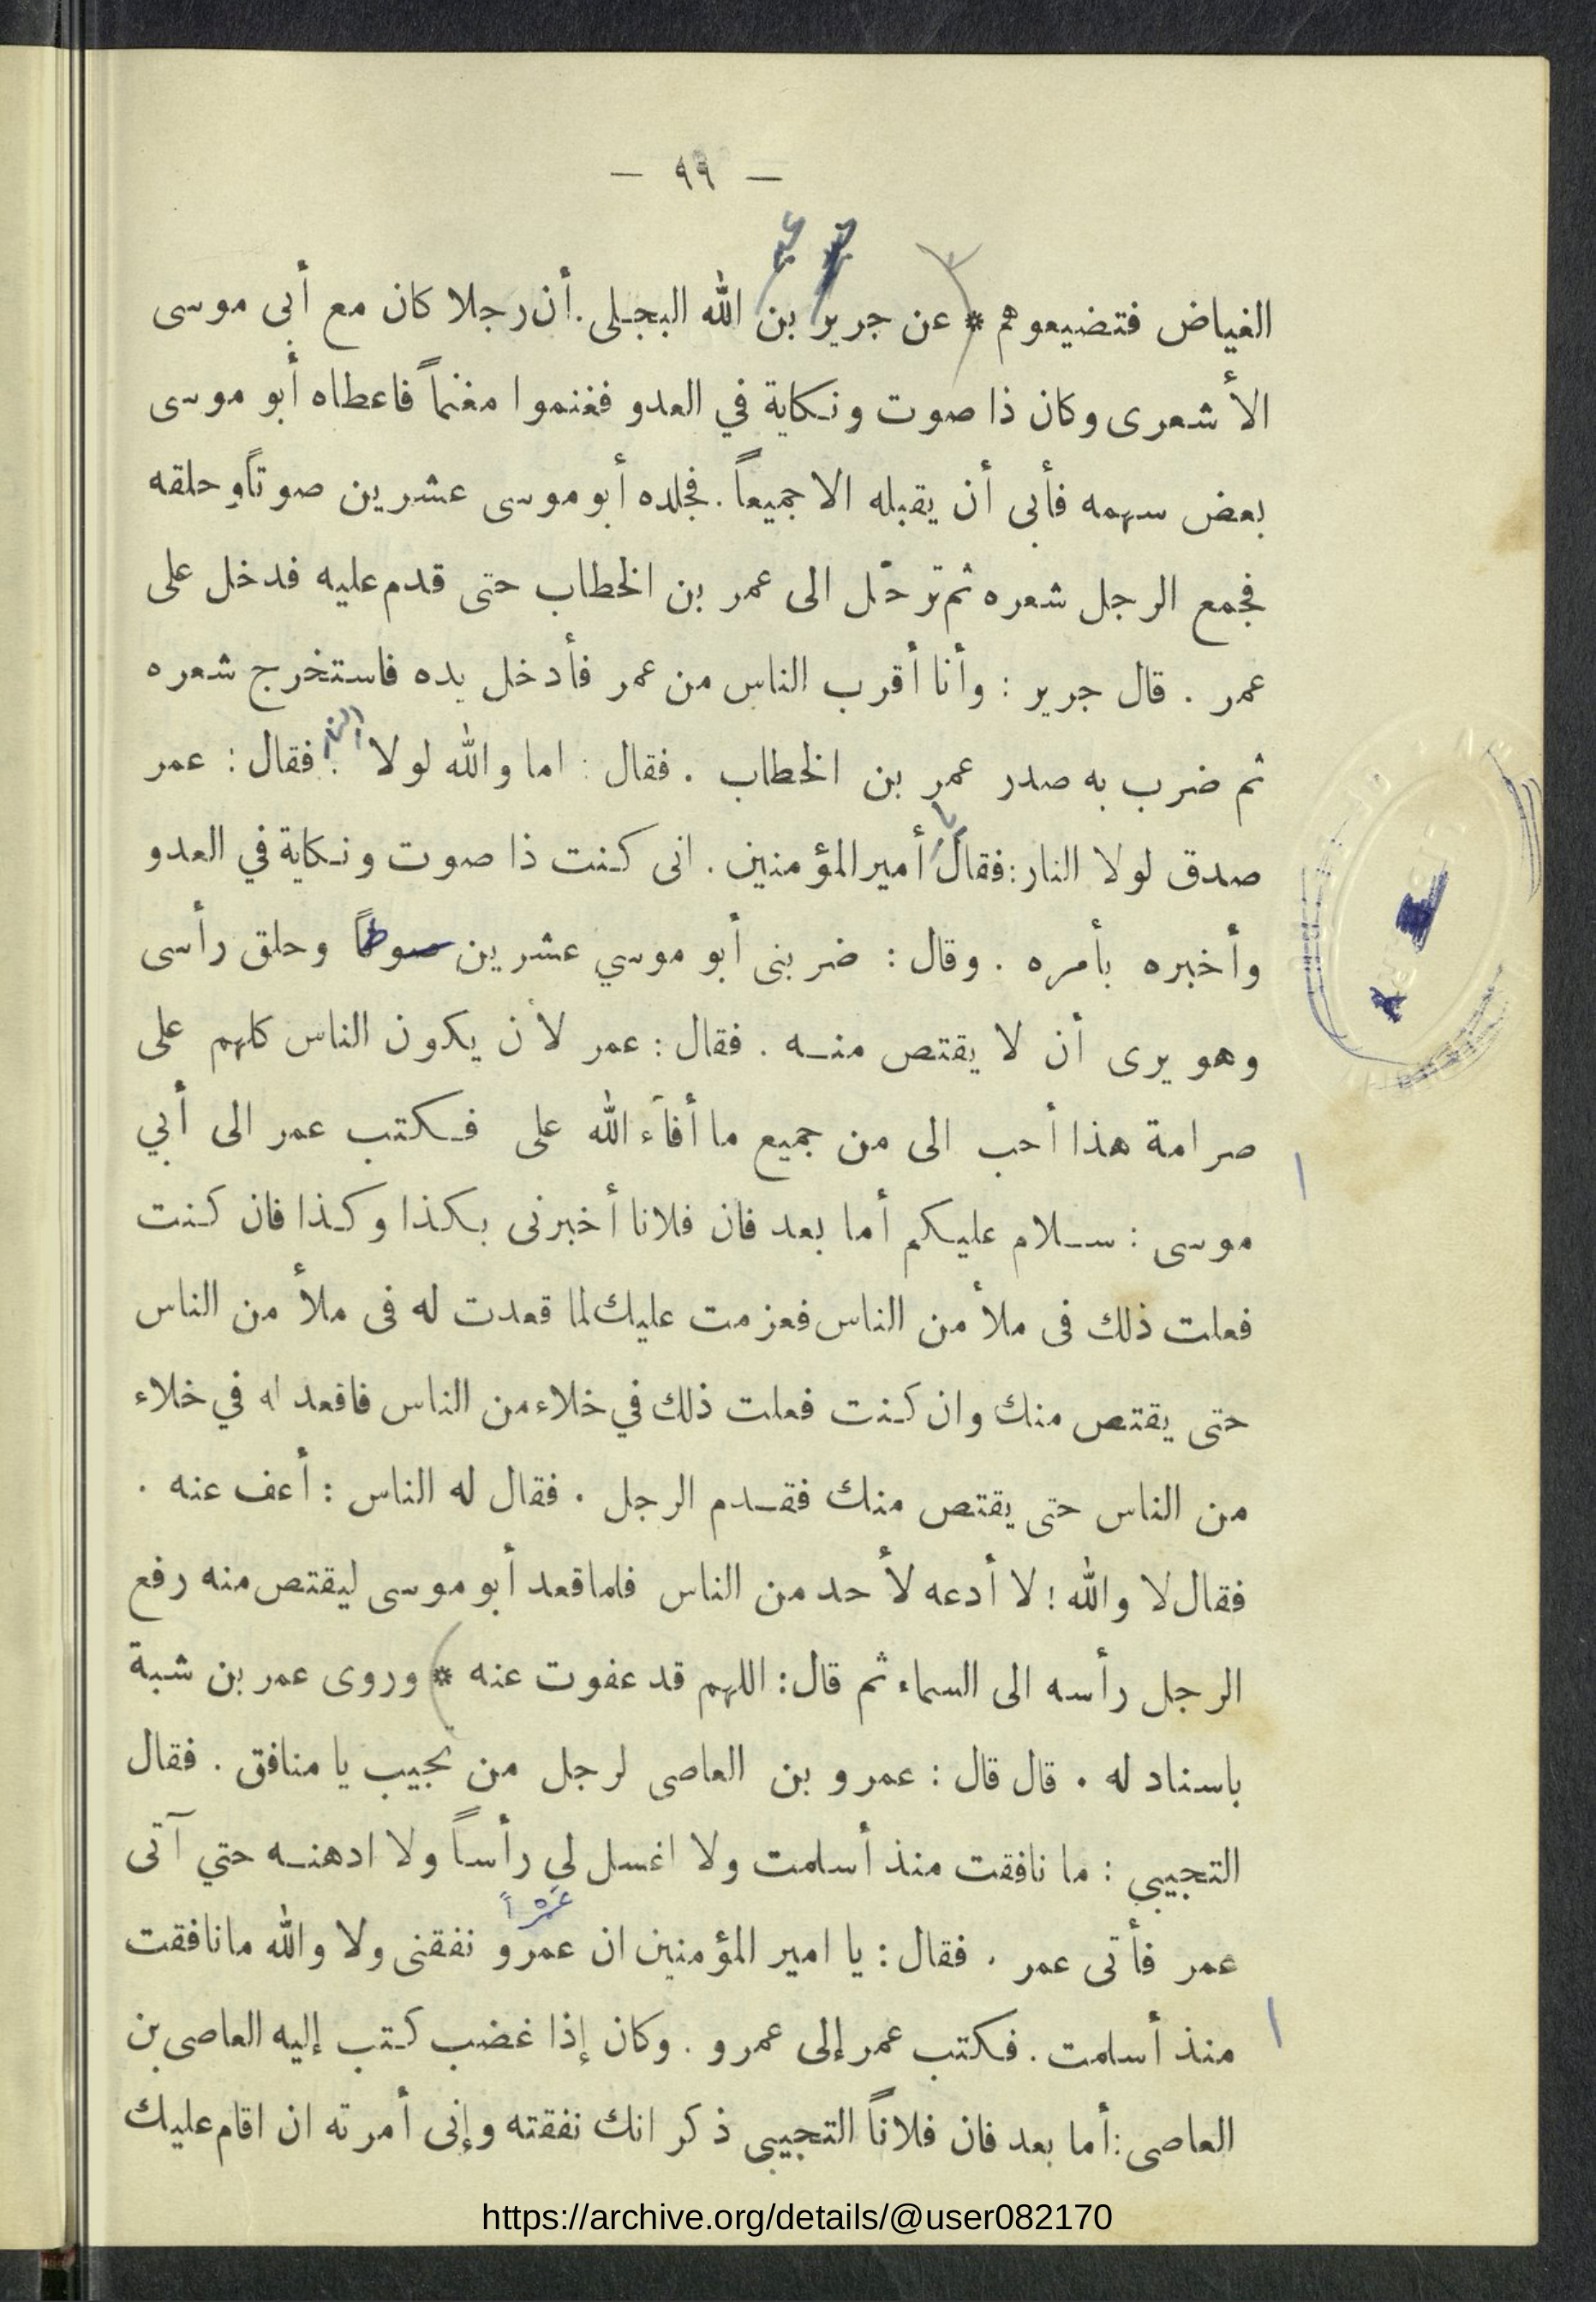 — ٩٩ —
الغياض فتضيعوهم * عن جرير بن الله البجلى . أن رجلا كان مع أبى موسى
الأشعرى وكان ذا صوت ونكاية في العدو فغنموا مغنماً فاعطاه أبو موسى
بعض سهمه فأبى أن يقبله الا جميعاً . فجلده أبو موسى عشرين صوتاً وحلقه
فجمع الرجل شعره ثم ترحّل الى عمر بن الخطاب حتى قدم عليه فدخل على
عمر . قال جرير : وأنا أقرب الناس من عمر فأدخل يده فاستخرج شعره
النار
ثم ضرب به صدر عمر بن الخطاب . فقال : اما والله لولا . فقال : عمر
يا
صدق لولا النار : فقال أمير المؤمنين . انى كنت ذا صوت ونكاية في العدو
وأخبره بأمره . وقال : ضربنى أبو موسي عشرين سوطاً وحلق رأسى
وهو يرى أن لا يقتص منه . فقال : عمر لأن يكون الناس كلهم على
صرامة هذا أحب الى من جميع ما أفآء الله على فكتب عمر الى أبي
موسى : سلام عليكم أما بعد فان فلانا أخبرنى بكذا وكذا فان كنت
فعلت ذلك فى ملأ من الناس فعزمت عليك لما قعدت له فى ملأ من الناس
حتى يقتص منك وان كنت فعلت ذلك في خلاء من الناس فاقعد له في خلاء
من الناس حتى يقتص منك فقدم الرجل . فقال له الناس : أعف عنه .
فقال لا والله ! لا أدعه لأحد من الناس فلما قعد أبو موسى ليقتص منه رفع
الرجل رأسه الى السماء ثم قال : اللهم قد عفوت عنه * وروى عمر بن شبة
باسناد له . قال قال : عمرو بن العاصى لرجل من تجيب يا منافق . فقال
التجيبي : ما نافقت منذ أسلمت ولا اغسل لي رأساً ولا ادهنه حتي آتى
عَمْراً
عمر فأتى عمر . فقال : يا امير المؤمنين ان عمرو نفقنى ولا والله ما نافقت
منذ أسلمت . فكتب عمر إلى عمرو . وكان إذا غضب كتب إليه العاصى بن
العاصى : أما بعد فان فلاناً التجيبى ذكر انك نفقته وإنى أمرته ان اقام عليك
https://archive.org/details/@user082170